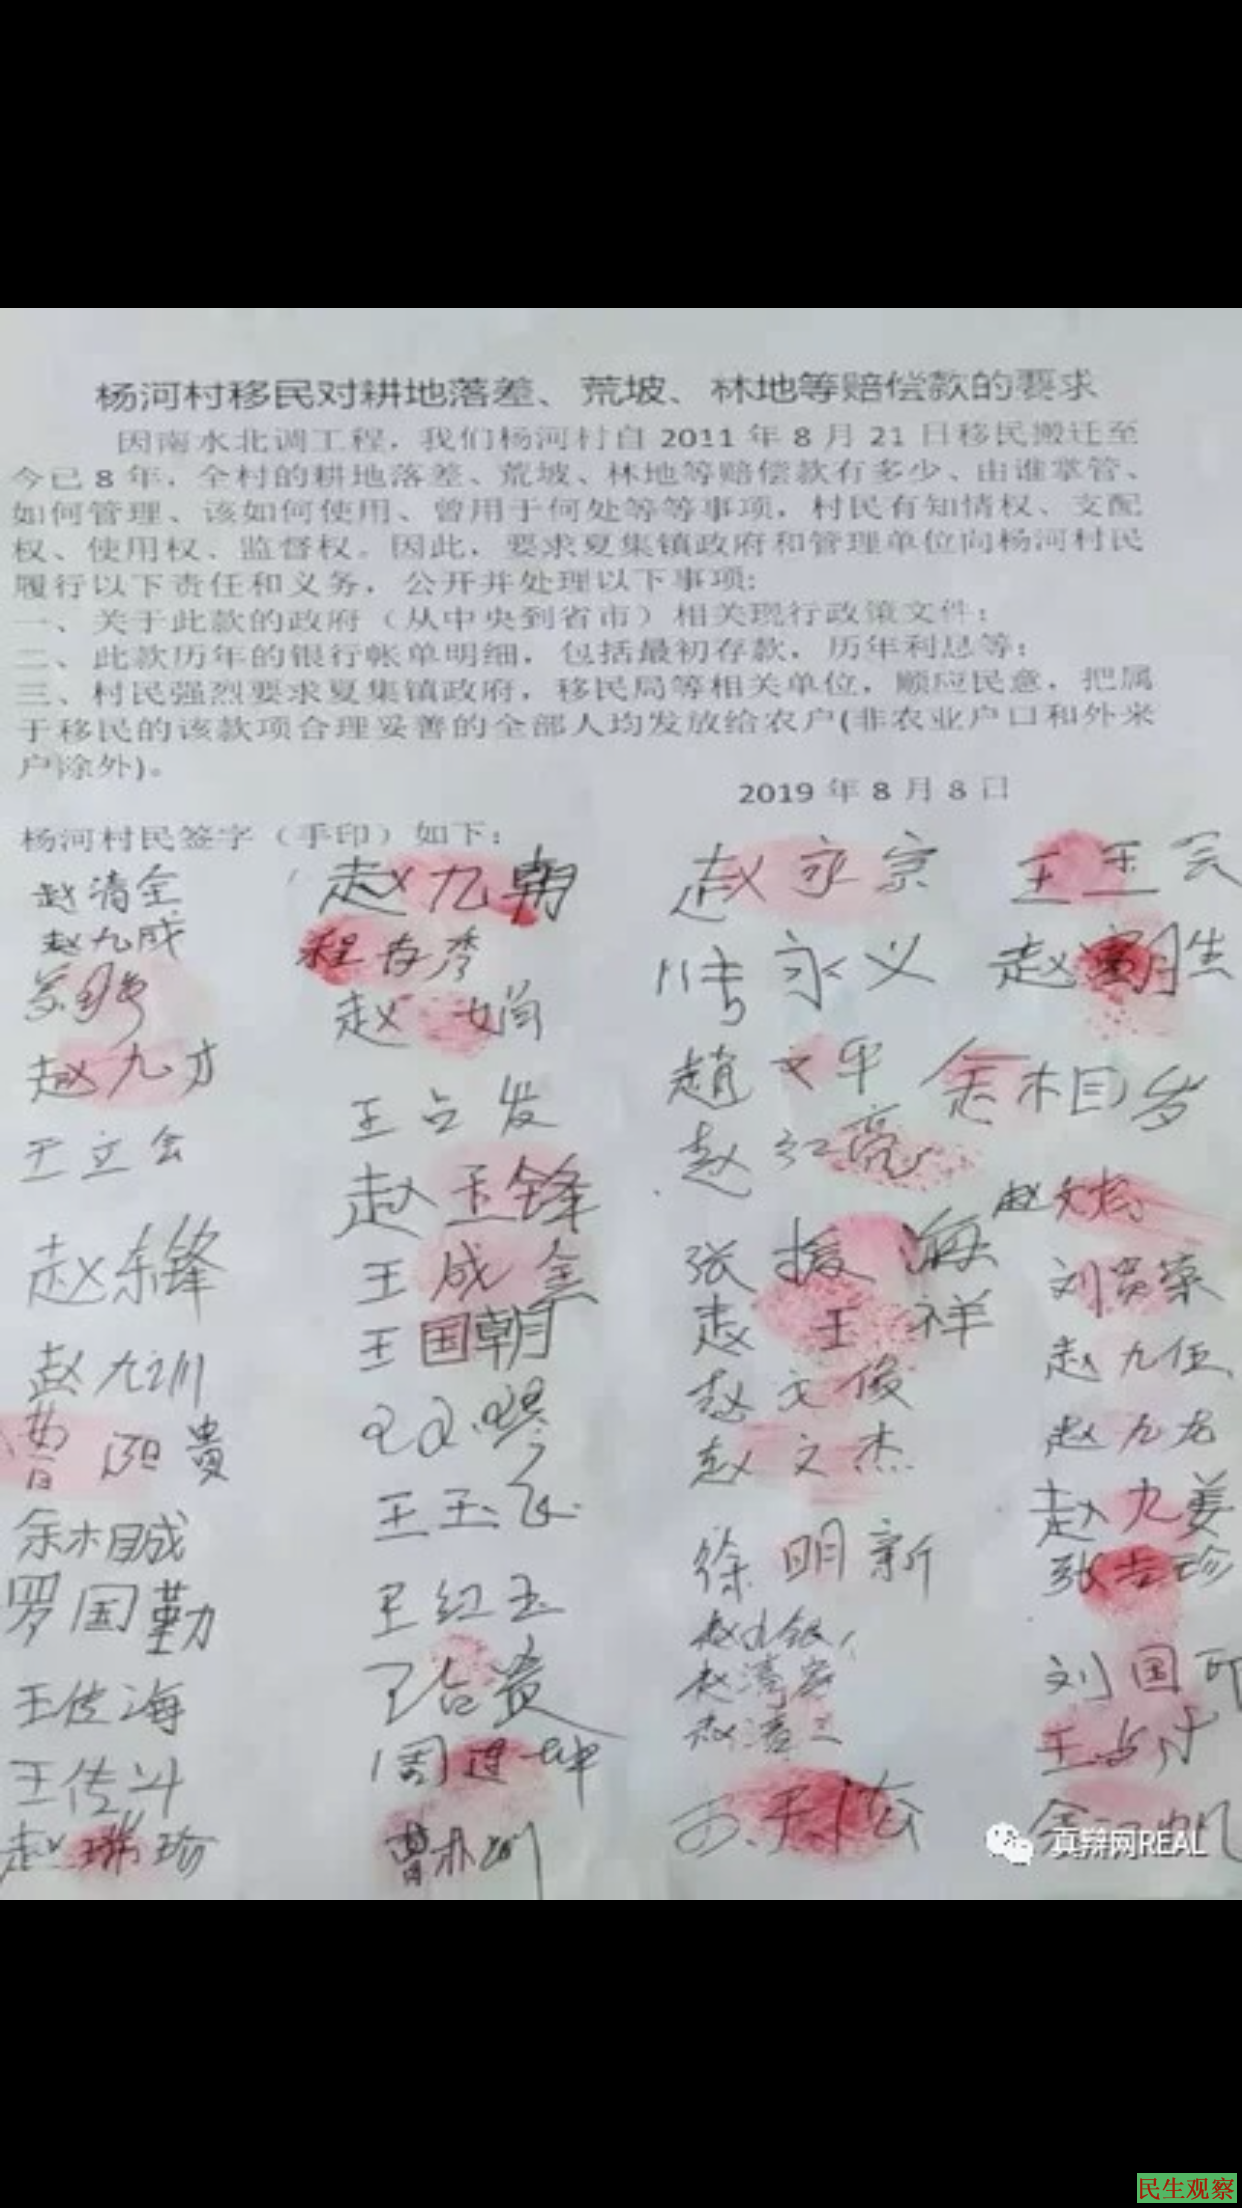 杨河村移民对耕地落差、荒坡、林地等赔偿款的要求
因南水北调工程，我们杨河村自 2011 年 8 月 21 日移民搬迁至
今已 8 年，全村的耕地落差、荒坡、林地等赔偿款有多少、由谁掌管、
如何管理、该如何使用、曾用于何处等等事项，村民有知情权、支配
权、使用权、监督权。因此，要求夏集镇政府和管理单位向杨河村民
履行以下责任和义务，公开并处理以下事项:
一、关于此款的政府（从中央到省市）相关现行政策文件；
二、此款历年的银行帐单明细，包括最初存款，历年利息等；
三、村民强烈要求夏集镇政府，移民局等相关单位，顺应民意，把属
于移民的该款项合理妥善的全部人均发放给农户(非农业户口和外来
户除外)。
2019 年 8 月 8 日
杨河村民签字（手印）如下：
赵清全 赵九朝 赵永宗
赵九成 程春秀 永义 赵 胜
赵 赵文平
赵九才 王占发 赵红亮 余相岁
王立会 赵玉锋 张援海 赵文
赵东锋 王成全 赵玉祥 刘
赵九训 王国朝 赵文俊 赵九伍
曹 贵 赵文杰 赵九龙
余相成 王玉 徐明新 赵九姜
罗国勤 王红玉 赵 银 张 珍
王传海 王合贵 赵清 刘国
王传斗 周建坤 赵清 王占
赵 珍 曹
真辩网REAL
民生观察